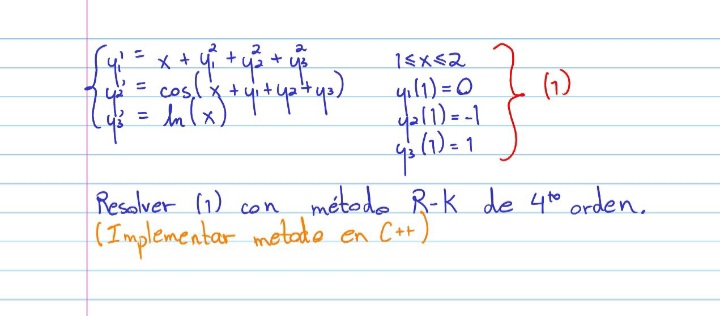 y₁' = x + y₁² + y₂² + y₃² 1≤x≤2
y₂' = cos(x + y₁ + y₂ + y₃) y₁(1) = 0 (1)
y₃' = ln(x) y₂(1) = -1
y₃(1) = 1
Resolver (1) con método R-K de 4ᵗᵒ orden.
(Implementar metodo en C++)